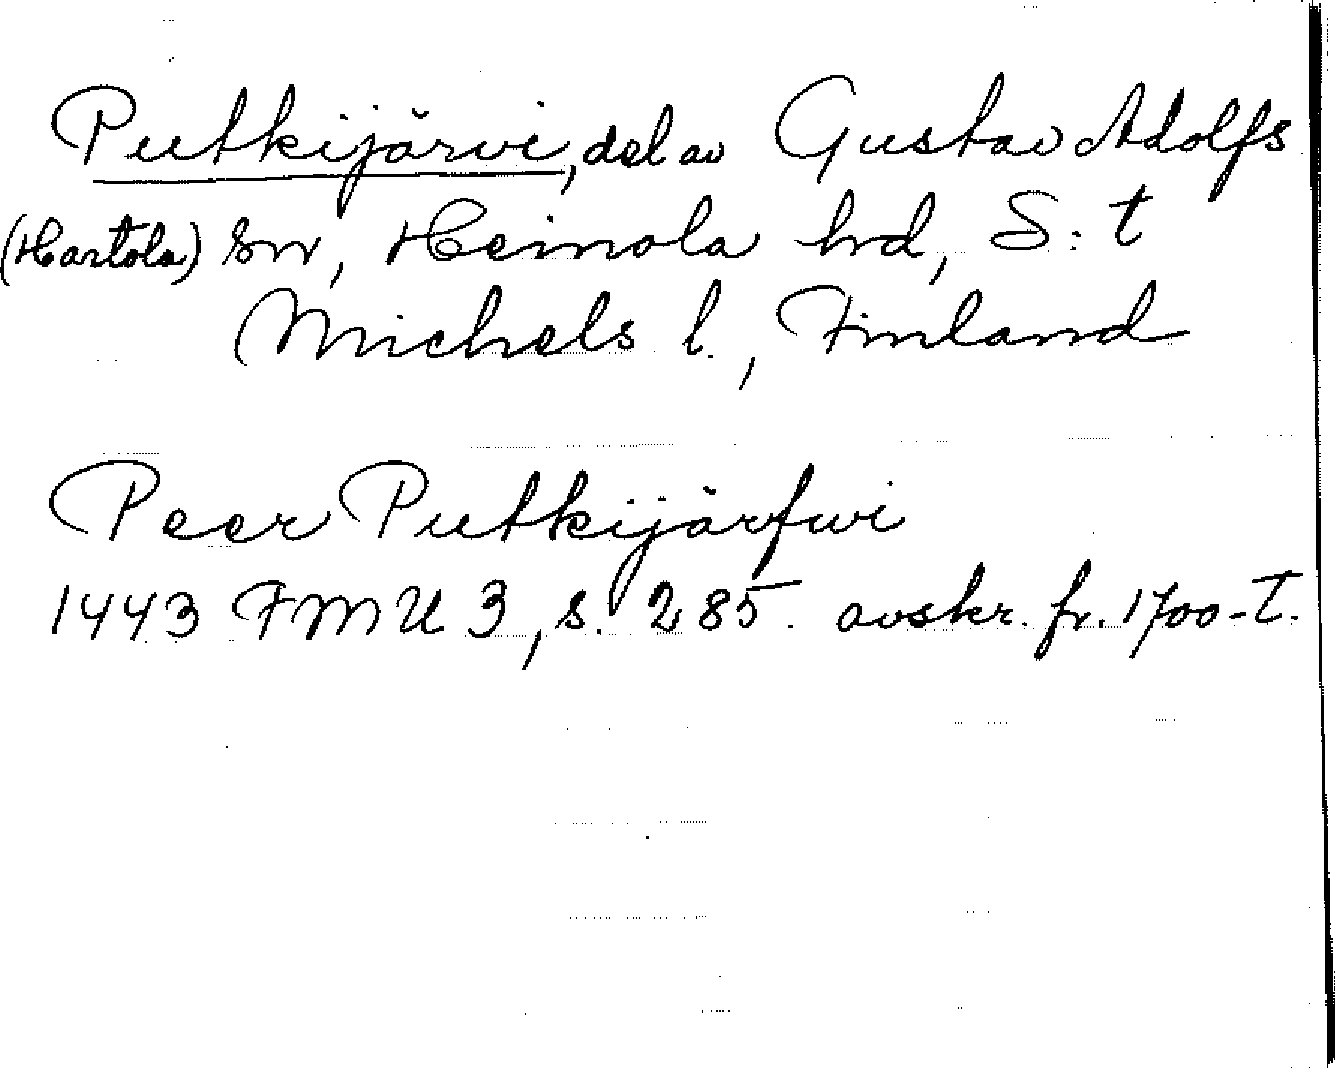 Putkijärvi, del av Gustav Adolfs
(Hartola) sn, Heinola hd, S:t
Michels l., Finland
Peer Putkijärfwi
1443 FMU 3, s. 285. avskr. fr. 1700-t.